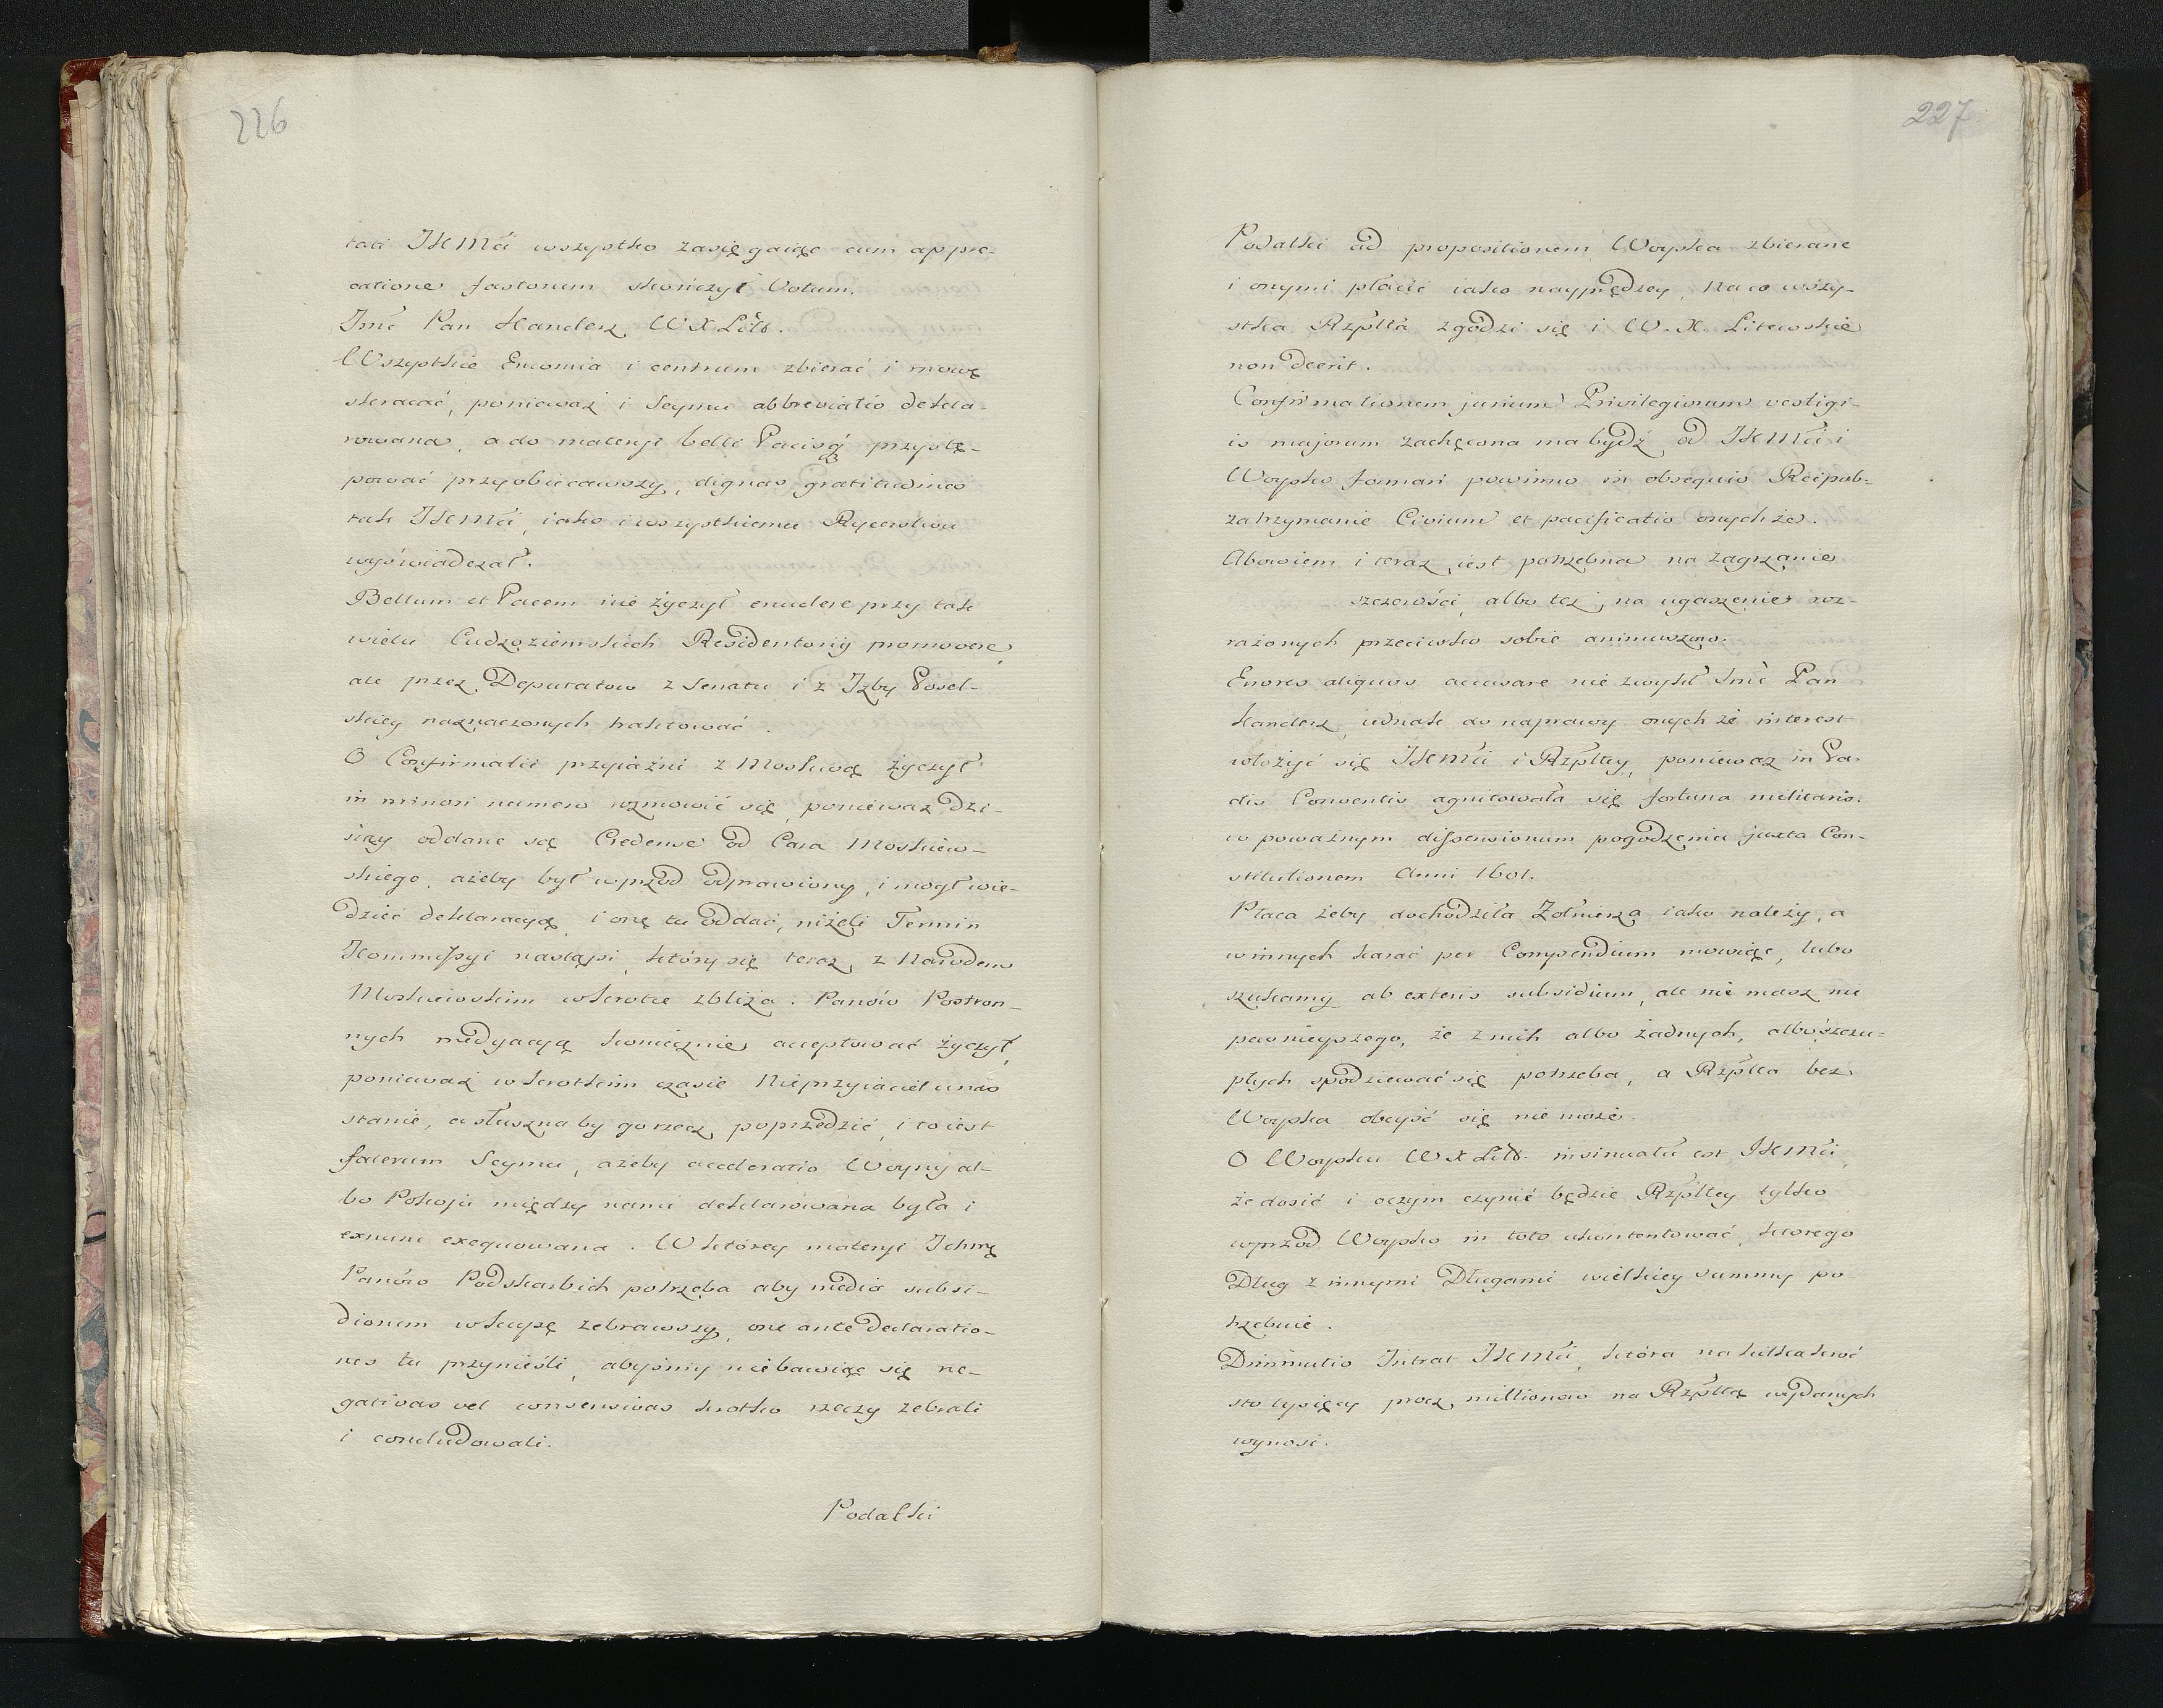 226
tati JKMći wszystko zasięgaiąc cum appre-
catione fastorum skończył Votum.
Jmć Pan Kanclerz WXLitt.
Wszystkie Encomia i centrum zbierać i mowę
skracać, ponieważ i Seymu abbreviatio dekla-
rowana, a do materyi belli Pacisq przystę-
pować przyobiecawszy, dignas gratitudines
tak JKMći, iako i wszystkiemu Rycerstwu
wyświadczał.
Bellum et Pacem nie życzył enudere przy tak
wielu Cudzoziemskich Residentorij promovere,
ale przez Deputatow z Senatu i z Izby Posel-
skiey naznaczonych traktować.
O Confirmatii przyiaźni z Moskwą życzył
in minori numero rozmowić się, ponieważ dzi-
siay oddane są Credense od Cara Moskiew-
skiego, ażeby był wprzod odprawiony, i mogł wie-
dzieć deklaracyą, i onę tu oddać, niżeli Termin
Kommissyi nastąpi, który się teraz z Narodem
Moskiewskim wkrotce zbliża. Panów Postron-
nych medyacyą koniecznie acceptować życzył,
ponieważ w krotkim czasie Nieprzyiaciel u nas
stanie, a słuszna by go rzecz poprzedzić, i to iest
facerum Seymu, ażeby acceleratio Woyny al-
bo Pokoju między nami deklarowana była i
exnunc exequowana. W którey materyi Ichmę
Panów Podskarbich potrzeba aby media subsi-
diorum w kupę zebrawszy, one ante declaratio-
nes tu przynieśli, abyśmy nie bawiąc się ne-
gativas vel consensivas krotko rzeczy zebrali
i concludowali.
Podatki
227
Podatki ad propositionem Woyska zbierane
i onymi płacić iako nayprędzey, na co wszy-
stka Rzpltta zgodzi się i W. X. Litewskie
non deerit.
Confirmationem jurium Privilegiorum vestigi-
is majorum zachęcona ma bydź od JKMći i
Woysko formari powinno in obsequio Reipub-
zatrzymanie Civium et pacificatio onychże.
Abowiem i teraz iest potrzebna na zagrzanie
szczerości, albo też, na ugaszenie roz-
rażonych przeciwko sobie animuszow.
Errores aliquos accusare nie zwykł Jmć Pan
Kanclerz, iednak do naprawy onych że interest
włożyć się JKMći i Rzpltey, ponieważ in Pa-
dis Conventis agnitowała się fortuna militaris.
w poważnym dissensionum pogodzenia juxta Con-
stitutionem Anni 1601.
Płaca żeby dochodziła Żołnierza iako należy, a
winnych karać per Compendium mowiąc, lubo
szukamy ab exteris subsidium, ale nie masz nic
pewnieyszego, że z nich albo żadnych, albo szczu-
płych spodziewać się potrzeba, a Rzpltta bez
Woyska obeyść się nie może.
O Woysku WXLitt. insinuatũ est JKMći,
że dosić i oczym czynić będzie Rzpltey tylko
wprzod Woysko in toto ukontentować, ktorego
Dług z innymi Długami wielkiey summy po
trzebuie.
Diminutio Intrat JKMći, która na kilkakroć
sto tysięcy procz millionow na Rzplttę wydanych
wynosi.